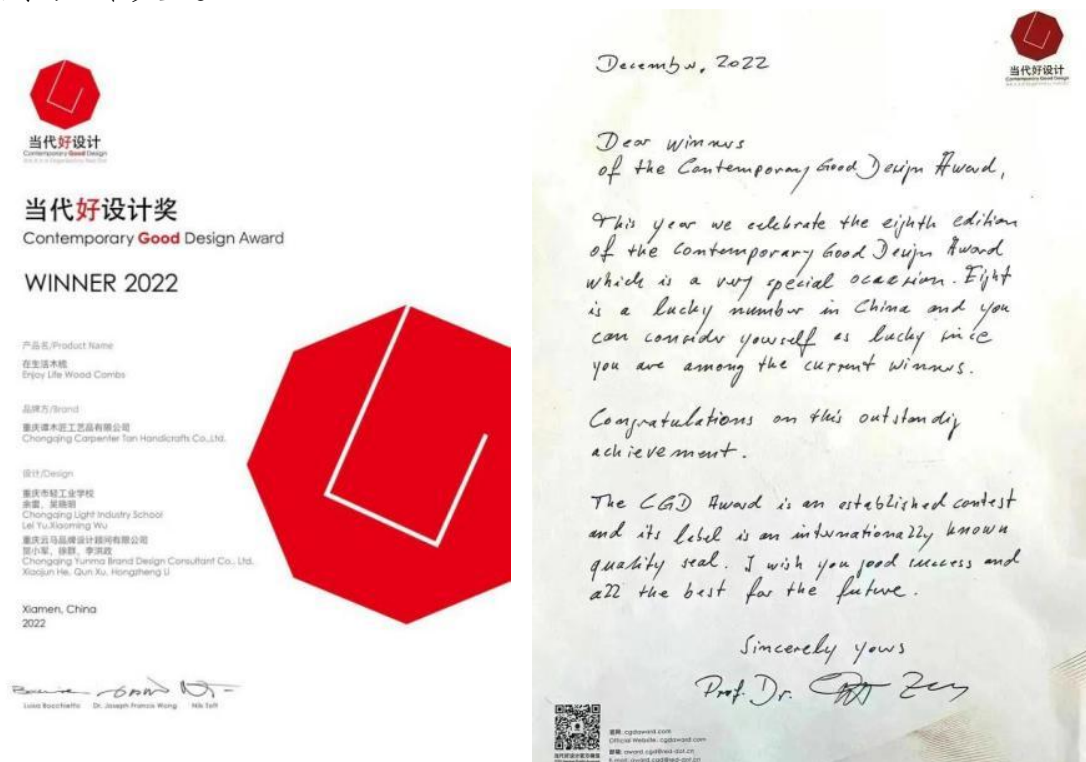 当代好设计
Contemporary Good Design
当代好设计奖
Contemporary Good Design Award
WINNER 2022
产品名/Product Name
在生活木梳
Enjoy Life Wood Combs
品牌方/Brand
重庆谭木匠工艺品有限公司
Chongqing Carpenter Tan Handicrafts Co.,Ltd.
设计/Design
重庆市轻工业学校
余雷、吴晓明
Chongqing Light Industry School
Lei Yu,Xiaoming Wu
重庆云马品牌设计顾问有限公司
贺小军、徐群、李洪政
Chongqing Yunma Brand Design Consultant Co., Ltd.
Xiaojun He, Qun Xu, Hongzheng Li
Xiamen, China
2022
Luisa Bocchietto Dr. Joseph Francis Wong Nils Toft
当代好设计
Contemporary Good Design
December, 2022
Dear winners
of the Contemporary Good Design Award,
This year we celebrate the eighth edition
of the Contemporary Good Design Award
which is a very special occasion. Eight
is a lucky number in China and you
can consider yourself as lucky since
you are among the current winners.
Congratulations on this outstandig
achievement.
The CGD Award is an established contest
and its label is an internationally known
quality seal. I wish you good success and
all the best for the future.
Sincerely yours
Prof. Dr.
官网: cgdaward.com
Official Website: cgdaward.com
邮箱: award.cgd@red-dot.cn
E-mail: award.cgd@red-dot.cn